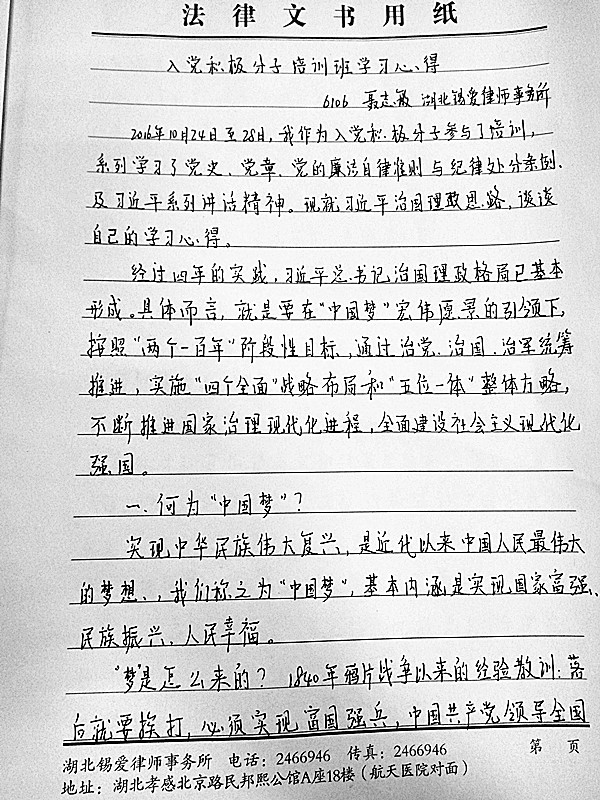 法律文书用纸
入党积极分子培训班学习心得
6106 聂志敏 湖北锡爱律师事务所
2016年10月24日至28日，我作为入党积极分子参与了培训，
系列学习了党史、党章、党的廉洁自律准则与纪律处分条例、
及习近平系列讲话精神。现就习近平治国理政思路，谈谈
自己的学习心得。
经过四年的实践，习近平总书记治国理政格局已基本
形成。具体而言，就是要在"中国梦"宏伟愿景的引领下，
按照"两个一百年"阶段性目标，通过治党、治国、治军统筹
推进，实施"四个全面"战略布局和"五位一体"整体方略，
不断推进国家治理现代化进程，全面建设社会主义现代化
强国。
一、何为"中国梦"？
实现中华民族伟大复兴，是近代以来中国人民最伟大
的梦想，，我们称之为"中国梦"，基本内涵是实现国家富强、
民族振兴、人民幸福。
"梦"是怎么来的？1840年鸦片战争以来的经验教训：落
后就要挨打，必须实现富国强兵，中国共产党领导全国
湖北锡爱律师事务所 电话：2466946 传真：2466946 第 页
地址：湖北孝感北京路民邦熙公馆A座18楼（航天医院对面）